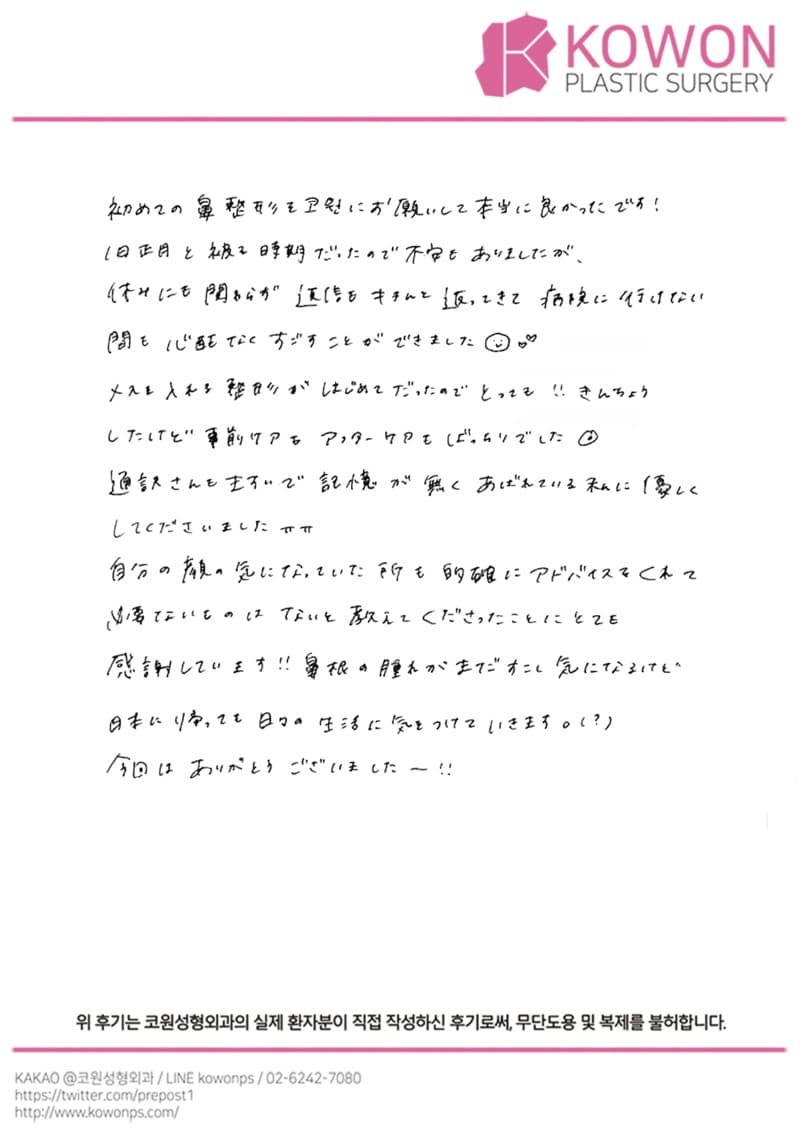 KOWON
PLASTIC SURGERY
初めての鼻整形を코원にお願いして本当に良かったです!
旧正月と被る時期だったので不安もありましたが、
休みにも関わらず 返信もキチんと返ってきて 病院に行けない
間も心配なくすごすことができました
メスを入れる整形がはじめてだったので とっても!! きんちょう
したけど 事前ケアも アフターケアも ばっちりでした
通訳さんもますいで記憶が無く あばれている私に優しく
してくださいました ㅠㅠ
自分の顔の気になっていた所も的確にアドバイスをくれて
必要ないものはないと教えてくださったことにとても
感謝しています!! 鼻根の腫れがまだすこし気になるけど
日本に帰っても日々の生活に気をつけていきます。(?)
今回は ありがとう ございました〜!!
위 후기는 코원성형외과의 실제 환자분이 직접 작성하신 후기로써, 무단도용 및 복제를 불허합니다.
KAKAO @코원성형외과 / LINE kowonps / 02-6242-7080
https://twitter.com/prepost1
http://www.kowonps.com/